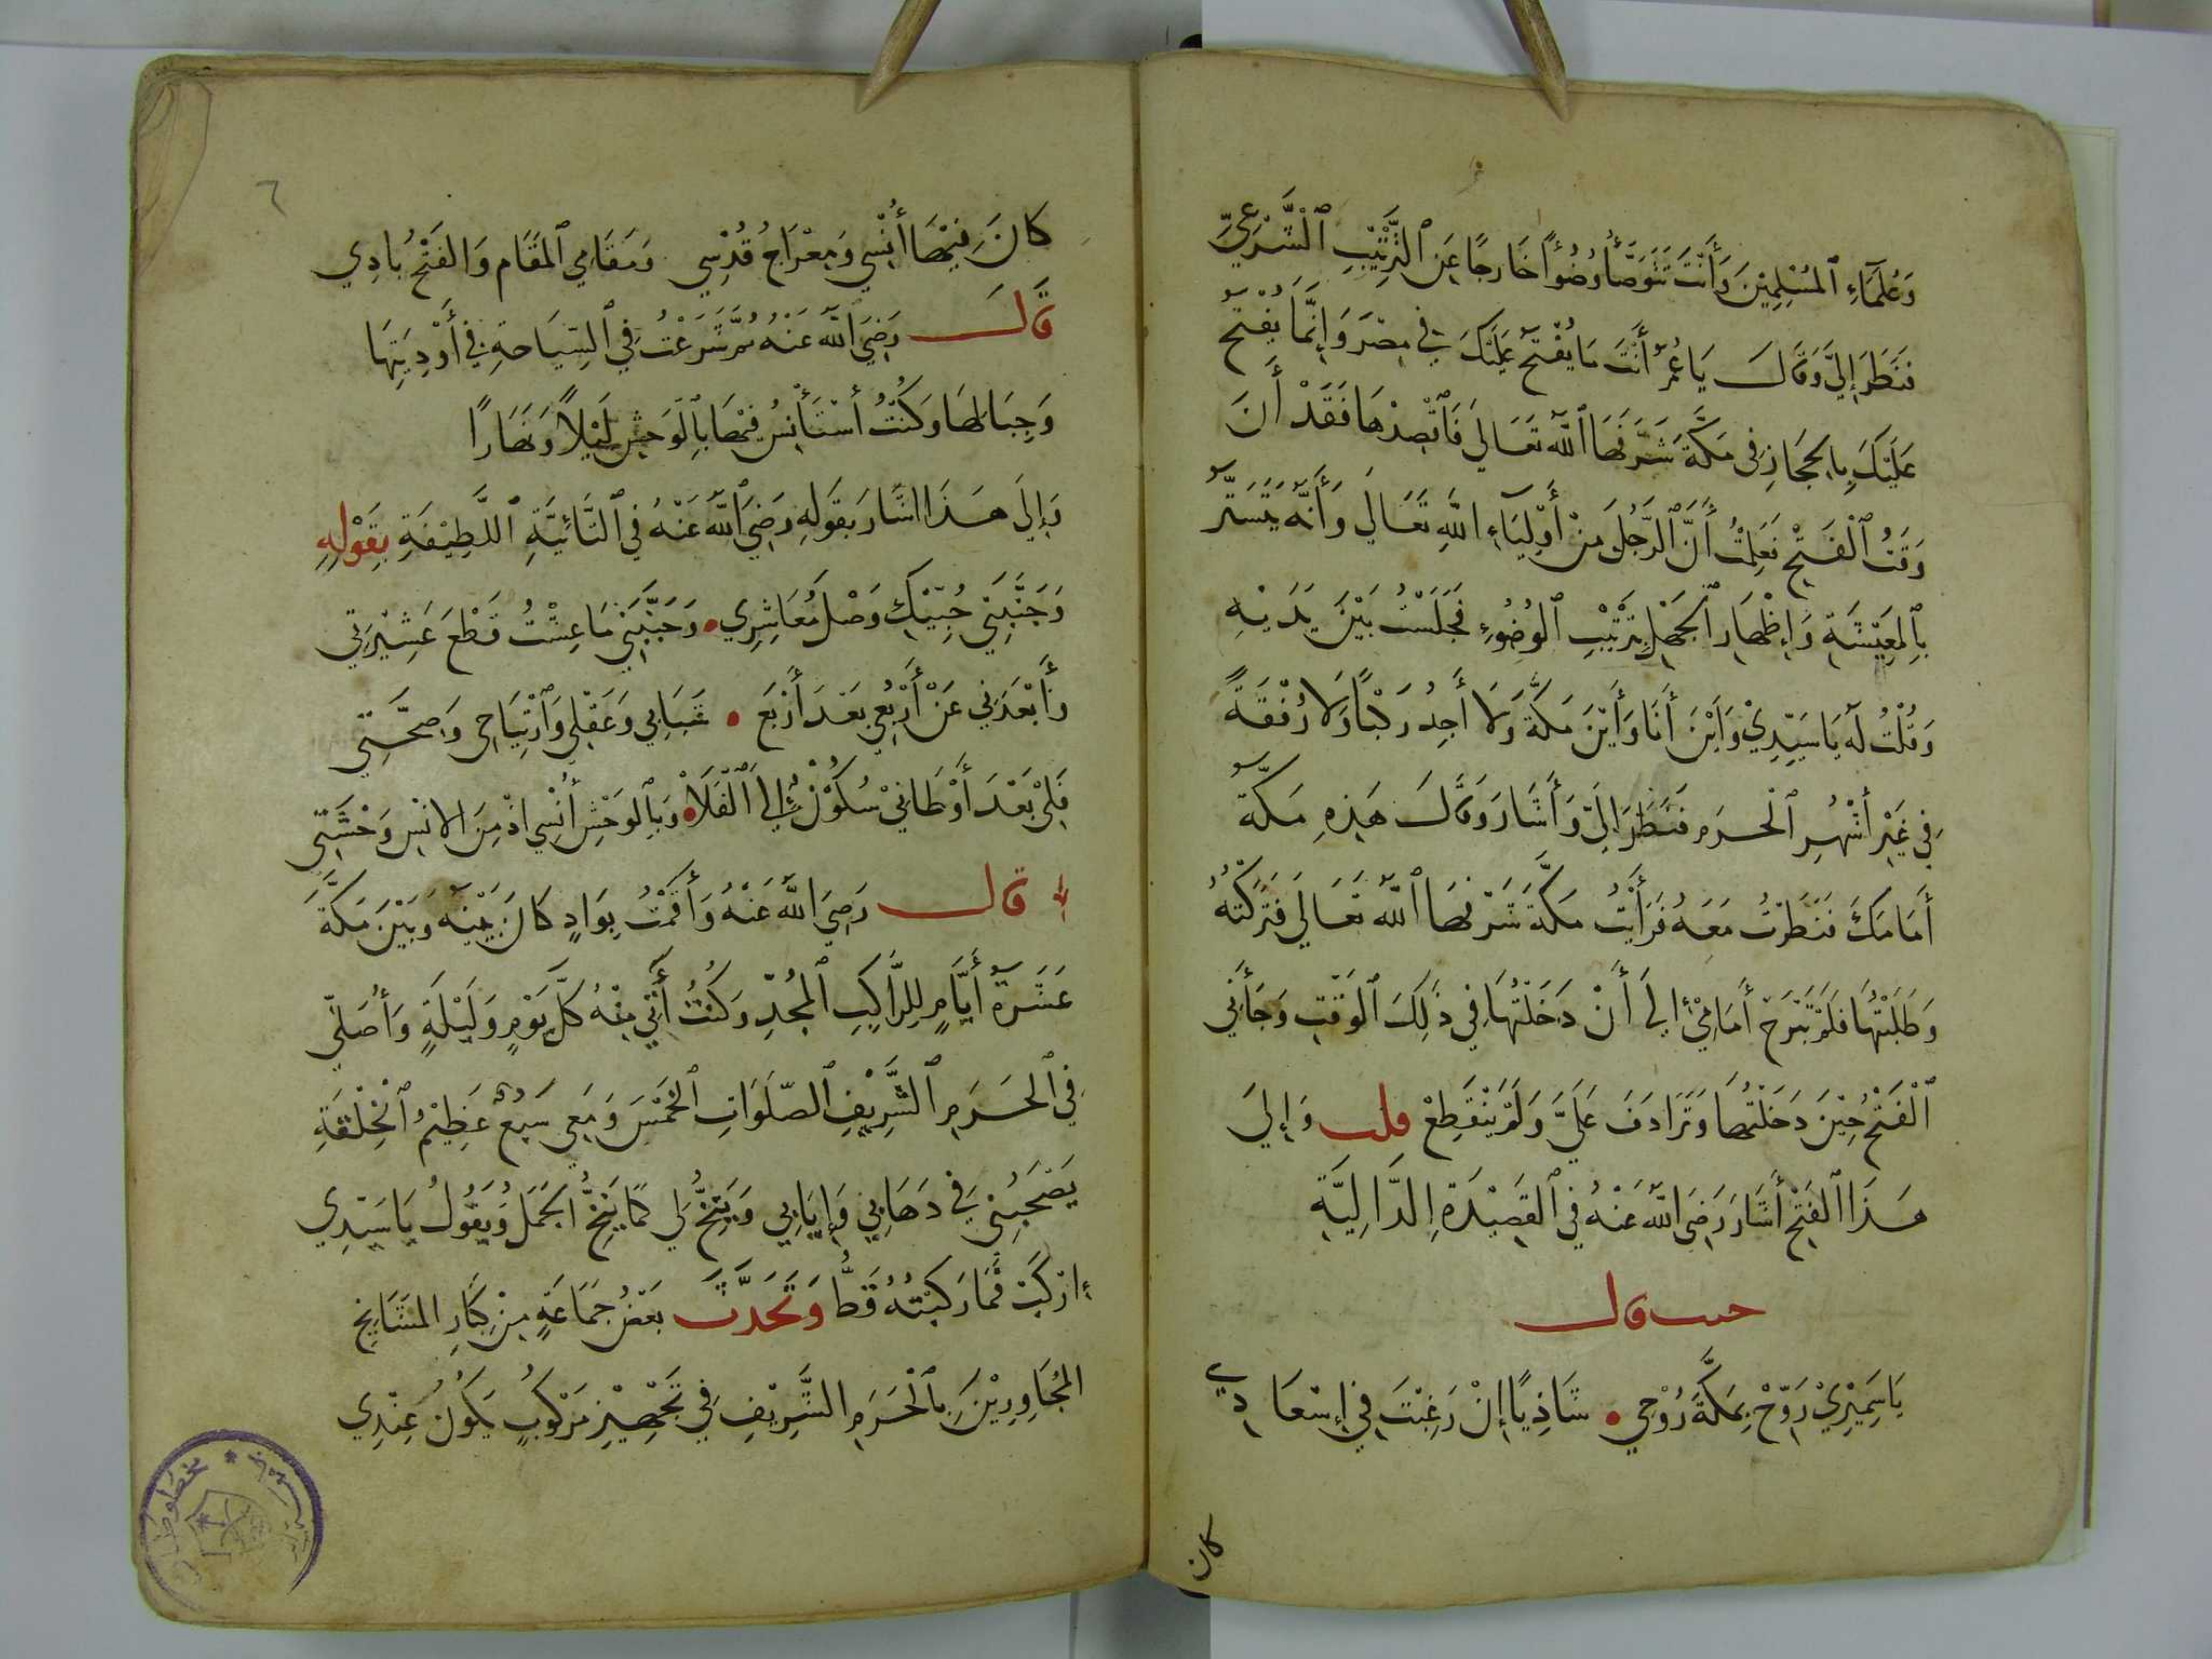 وَعُلَمَآءِ ٱلمُسْلِمِيْنَ وَأَنْتَ تَتَوَضَّأُ وُضُوْأً خَارِجًا عَنِ ٱلتَّرْتِيْبِ ٱلْشَّرْعِيِّ
فَنَظَرَ إِلَيَّ وَقَالَ يَا عُمَرُ أَنْتَ مَا يُفْتَحُ عَلَيْكَ فِي مِصْرَ وَإِنَّمَا يُفْتَحُ
عَلَيْكَ بِالحِجَازِ فِى مَكَّةَ شَرَّفَهَا ٱللَّهُ تَعَالَي فَٱقْصِدْهَا فَقَدْ أَنَ
وَقْتُ ٱلْفَتْحِ فَعَلِمْتُ أَنَّ ٱلرَّجُلَ مِنْ أَوْلِيَآءِ اللَّهِ تَعَالَي وَأَنَّهُ يَتَسَتَّرُ
بِٱلمَعِيْشَةِ وَإِظْهَارِ ٱلجَهْلِ بِتَرْتِيْبِ ٱلوُضُوْءِ فَجَلَسْتُ بَيْنَ يَدَيْهِ
وَقُلْتُ لَهُ يَا سَيِّدِيْ وَأَيْنَ أَنَا وَأَيْنَ مَكَّةَ وَلَا أَجِدُ رَكْبًا وَلَا رُفْقَةً
فِي غَيْرِ أَشْهُرِ ٱلْحَرَمِ فَنَظَرَ إِلَيَّ وَأَشَارَ وَقَالَ هَذِهِ مَكَّةُ
أَمَامَكَ فَنَظَرْتُ مَعَهُ فَرَأَيْتُ مَكَّةَ شَرَّفَهَا ٱللَّهُ تَعَالَي فَتَرَكْتُهُ
وَطَلَبْتُهَا فَلَمْ تَبْرَحْ أَمَامِيْ إِلَي أَنْ دَخَلْتُهَا فِي ذٰلِكَ ٱلوَقْتِ وَجَأَنِي
ٱلْفَتْحُ حِيْنَ دَخَلْتُهَا وَتَرَادَفَ عَلَيَّ وَلَمْ يَنْقَطِعْ قلت وَإِلَيَ
هَذَا ٱلفَتْحِ أَشَارَ رَضِيَ اللَّهُ عَنْهُ فِي ٱلقَصِيْدَةِ الدَّالِيَّةِ
حيث قال
يَا سَمِيْرِيْ رَوِّحْ بِمَكَّةَ رُوْحِي شَادِيًا إِنْ رَغِبْتَ فِي إِسْعَادِي
كان
٦
كَانَ فِيْهَا أُنْسِي وَمِعْرَاجُ قُدْسِي وَمَقَامِي ٱلمَقَام وَالفَتْحُ بَادِي
قَالَ رَضِيَ اللَّهُ عَنْهُ ثُمَّ شَرَعْتُ فِي ٱلسِّيَاحَةِ فِي أَوْدِيَتِهَا
وَجِبَالِهَا وَكُنْتُ أَسْتَأْنِسُ فِيْهَا بِالوَحْشِ لَيْلًا وَنَهَارًا
وَإِلَي هَذَا اشَارَ بِقَولِهِ رَضِيَ ٱللَّهُ عَنْهُ فِي ٱلتَّائِيَّةِ ٱللَّطِيْفَةِ بِقَوْلِهِ
وَجَنَّبَنِي حُبِّيْكِ وَصْلَ مُعَاشِرِي وَحَبَّبَنِي مَا عِشْتُ قَطْعَ عَشِيْرَتِي
وَأَبْعَدَنِي عَنْ أَرْبُعِي بَعْدَ أَرْبَعٍ شَبَابِي وَعَقْلِي وَٱرْتِيَاحِي وَصِحَّتِي
فَلِي بَعْدَ أَوْطَانِيْ سُكُوْنٌ إِلَي ٱلْفَلَاْ وَبِٱلوَحْشِ أُنْسِي اذْ مِنَ الانْسِ وَحْشَتِي
قال رَضِيَ اللَّهُ عَنْهُ وَأَقَمْتُ بِوَادٍ كَانَ بَيْنَهُ وَبَيْنَ مَكَّةَ
عَشَرَةُ أَيَّامٍ لِلرَّاكِبِ ٱلمُجِدِّ وَكُنْتُ أٰتِي مِنْهُ كُلَّ يَوْمٍ وَلَيْلَةٍ وَأُصَلِّي
فِي ٱلحَرَمِ ٱلشَّرِيْفِ ٱلصَّلَوَاتِ ٱلخَمْسَ وَمَعِي سَبُعٌ عَظِيْمُ ٱلْخِلْقَةِ
يَصْحَبُنِيْ فِي دَهَابِي وَإِيَابِي وَيَنِخُّ لِي كَمَا يَنِخُّ الجَمَلُ وَيَقُوْلُ يَا سَيِّدِي
إرْكَبْ فَمَا رَكِبْتُهُ قَطُّ وَتَحَدَّثَ بَعْضُ جَمَاعَةٍ مِنْ كِبَارِ المَشَايِخِ
المُجَاوِرِيْنَ بِٱلْحَرَمِ الشَّرِيْفِ فِي تَجْهِيْزِ مَرْكُوْبٍ يَكُوْنُ عِنْدِي